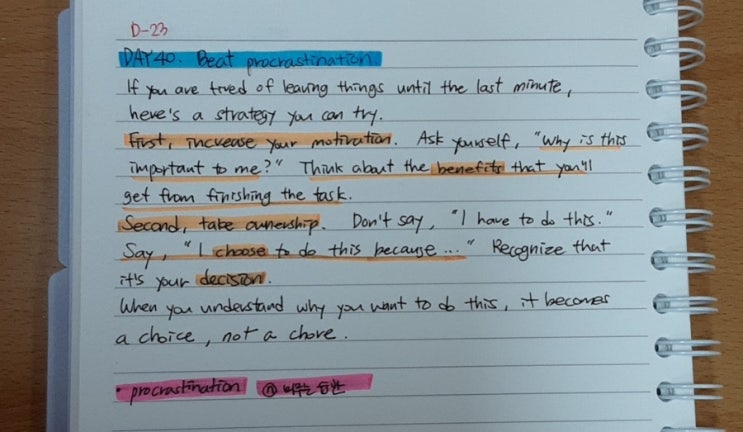 D-23
DAY 40. Beat procrastination.
If you are tired of leaving things until the last minute,
here's a strategy you can try.
First, increase your motivation. Ask yourself, "Why is this
important to me?" Think about the benefits that you'll
get from finishing the task.
Second, take ownership. Don't say, "I have to do this."
Say, "I choose to do this because ..." Recognize that
it's your decision.
When you understand why you want to do this, it becomes
a choice, not a chore.
• procrastination ⓝ 미루는 습관